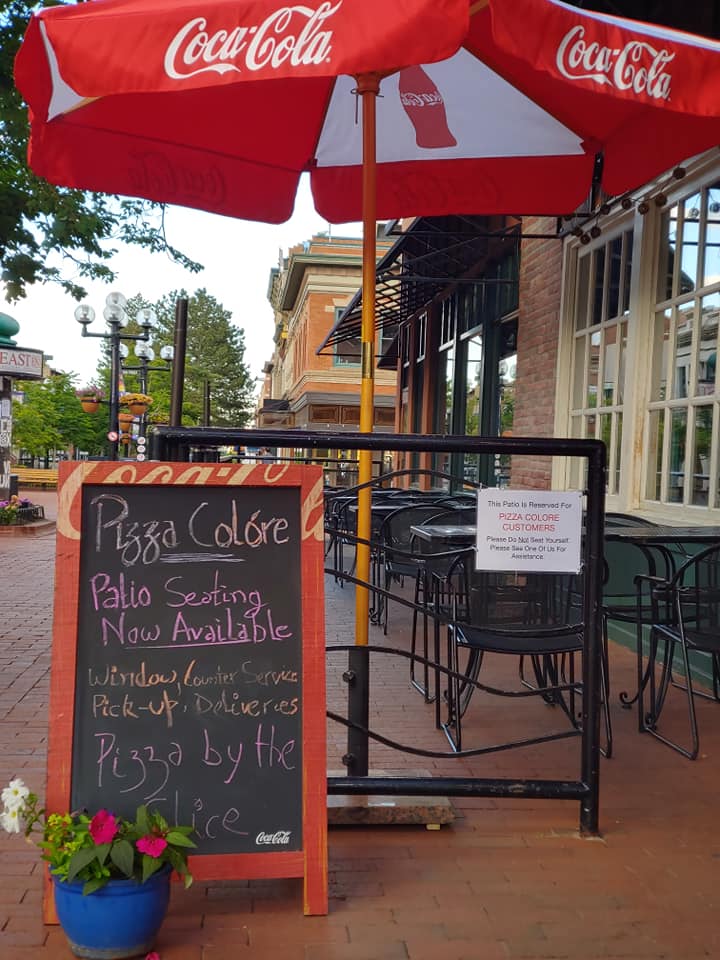 Coca-Cola
Coca-Cola
Coca-Cola
EAST
Coca-Cola
Pizza Colóre
Patio Seating
Now Available
Window/Counter Service
Pick-up, Deliveries
Pizza by the
Slice
Coca-Cola
This Patio Is Reserved For
PIZZA COLORE
CUSTOMERS
Please Do Not Seat Yourself.
Please See One Of Us For
Assistance.